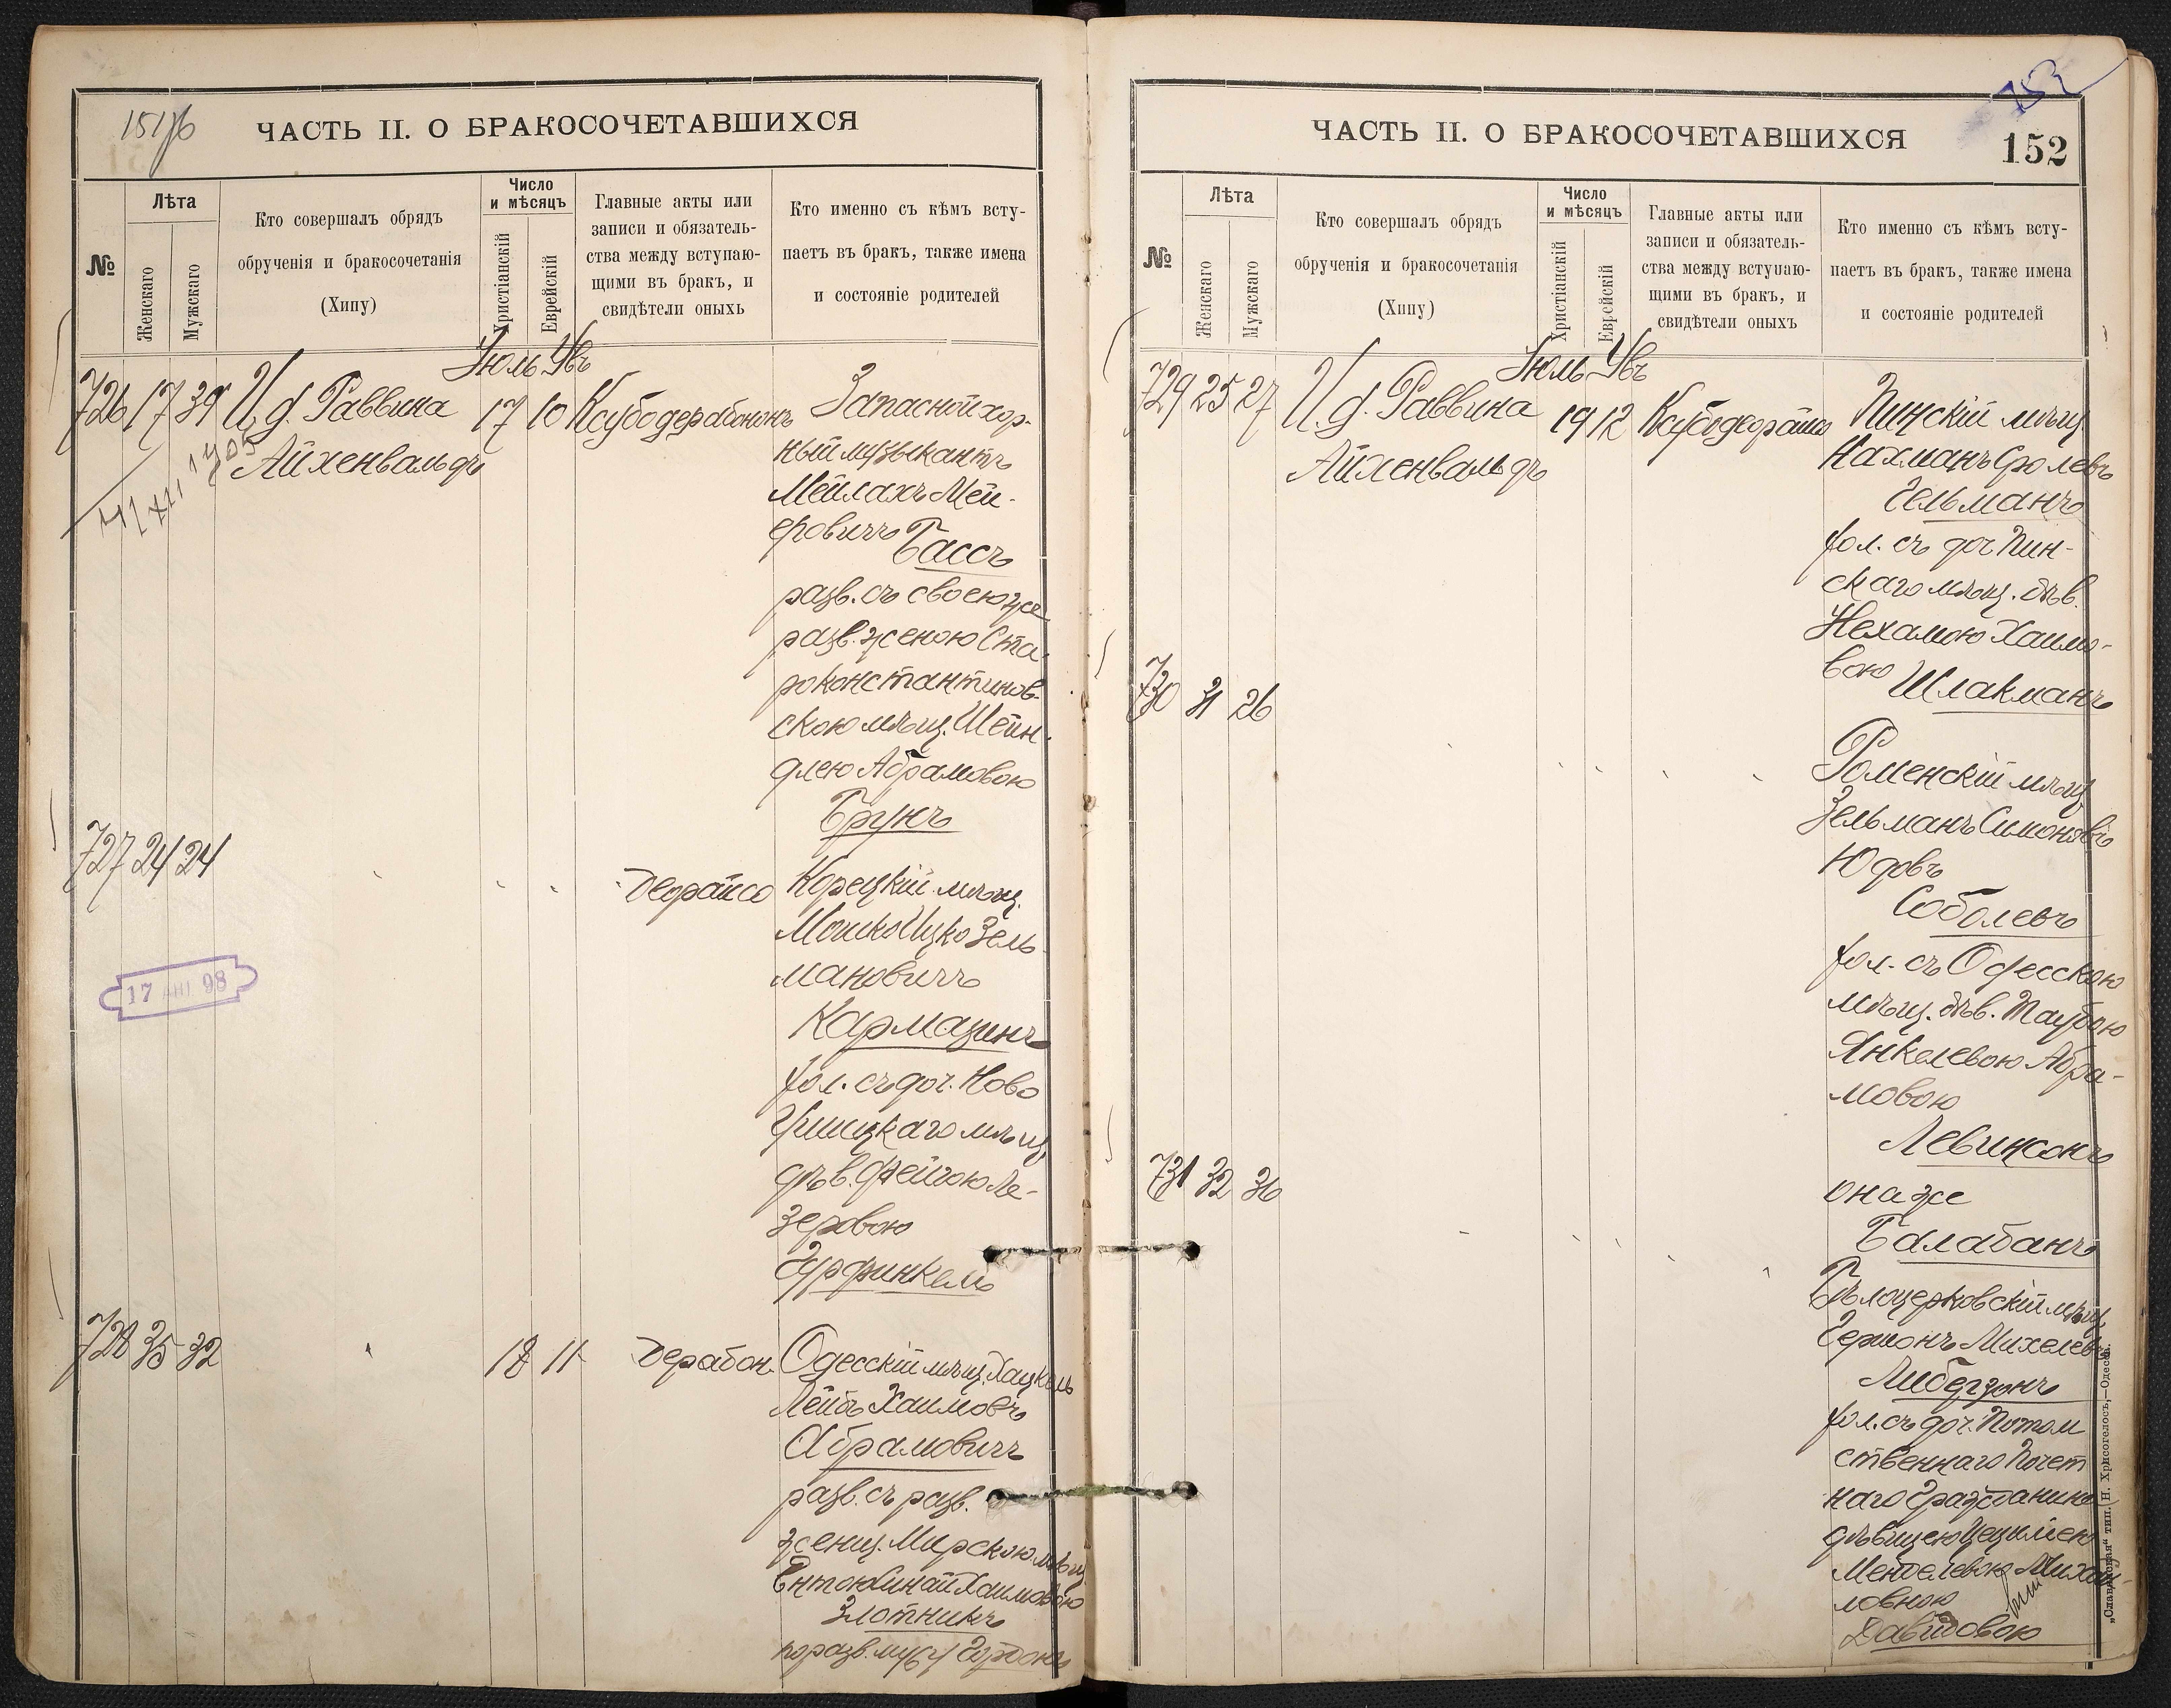 151 об
ЧАСТЬ II. О БРАКОСОЧЕТАВШИХСЯ
№
Лѣта
Женскаго
Мужскаго
Кто совершалъ обрядъ
обрученія и бракосочетанія
(Хипу)
Число
и мѣсяцъ
Христіанскій
Еврейскій
Главные акты или
записи и обязатель-
ства между вступаю-
щими въ бракъ, и
свидѣтели оныхъ
Кто именно съ кѣмъ всту-
паетъ въ бракъ, также имена
и состояніе родителей
Іюль Увъ
726 17 39 И.д. Раввина 17 10 Ксубодерабононъ Запасной хор-
Айхенвальдъ
ный музыкантъ
Мейлахъ Мей-
еровичъ Бассъ
разв. съ своею же
разв. женою Ста-
роконстантинов-
скою мѣщ. Шейн-
длею Абрамовою
Брунъ
727 24 24 Деорайсо Корецкій мѣщ.
Мошко Ицко Зель-
мановичъ
Кармазинъ
хол. съ доч. Ново
Ушицкаго мѣщ.
дѣв. Фейгою Ле-
зеровою
Гурфинкель
17 98
728 35 32 18 11 Дерабон. Одесскій мѣщ. Хацкель
Лейбъ Хаимовъ
Абрамовичъ
разв. съ разв.
женщ. Мирскою мѣщ.
Ентою Хаимовою
Злотникъ
по разв. мужу Гордонъ
152
ЧАСТЬ II. О БРАКОСОЧЕТАВШИХСЯ
152
№
Лѣта
Женскаго
Мужскаго
Кто совершалъ обрядъ
обрученія и бракосочетанія
(Хипу)
Число
и мѣсяцъ
Христіанскій
Еврейскій
Главные акты или
записи и обязатель-
ства между вступаю-
щими въ бракъ, и
свидѣтели оныхъ
Кто именно съ кѣмъ всту-
паетъ въ бракъ, также имена
и состояніе родителей
Іюль Увъ
729 25 27 И.д. Раввина 19 12 Ксубодеорайсо Пинскій мѣщ.
Айхенвальдъ
Нахманъ Сролевъ
Гельманъ
хол. съ доч. Пин-
скаго мѣщ. дѣв.
Нехамою Хаимо-
вою Шлакманъ
730 31 26
Роменскій мѣщ.
Зельманъ Симоновъ
Юдовъ
Соболевъ
хол. съ Одесскою
мѣщ. дѣв. Таубою
Янкелевою Абра-
мовою
Левинсонъ
она же
Балабанъ
731 32 36
Бѣлоцерковскій мѣщ.
Гершонъ Михелевъ
Либерзонъ
хол. съ доч. Потом
ственнаго Почет
наго Гражданина
дѣвицею Цециліею
Менделевою Михай-
ловною
Давидовою
„Славянская“ тип. Н. Хрисогелосъ,—Одесса.